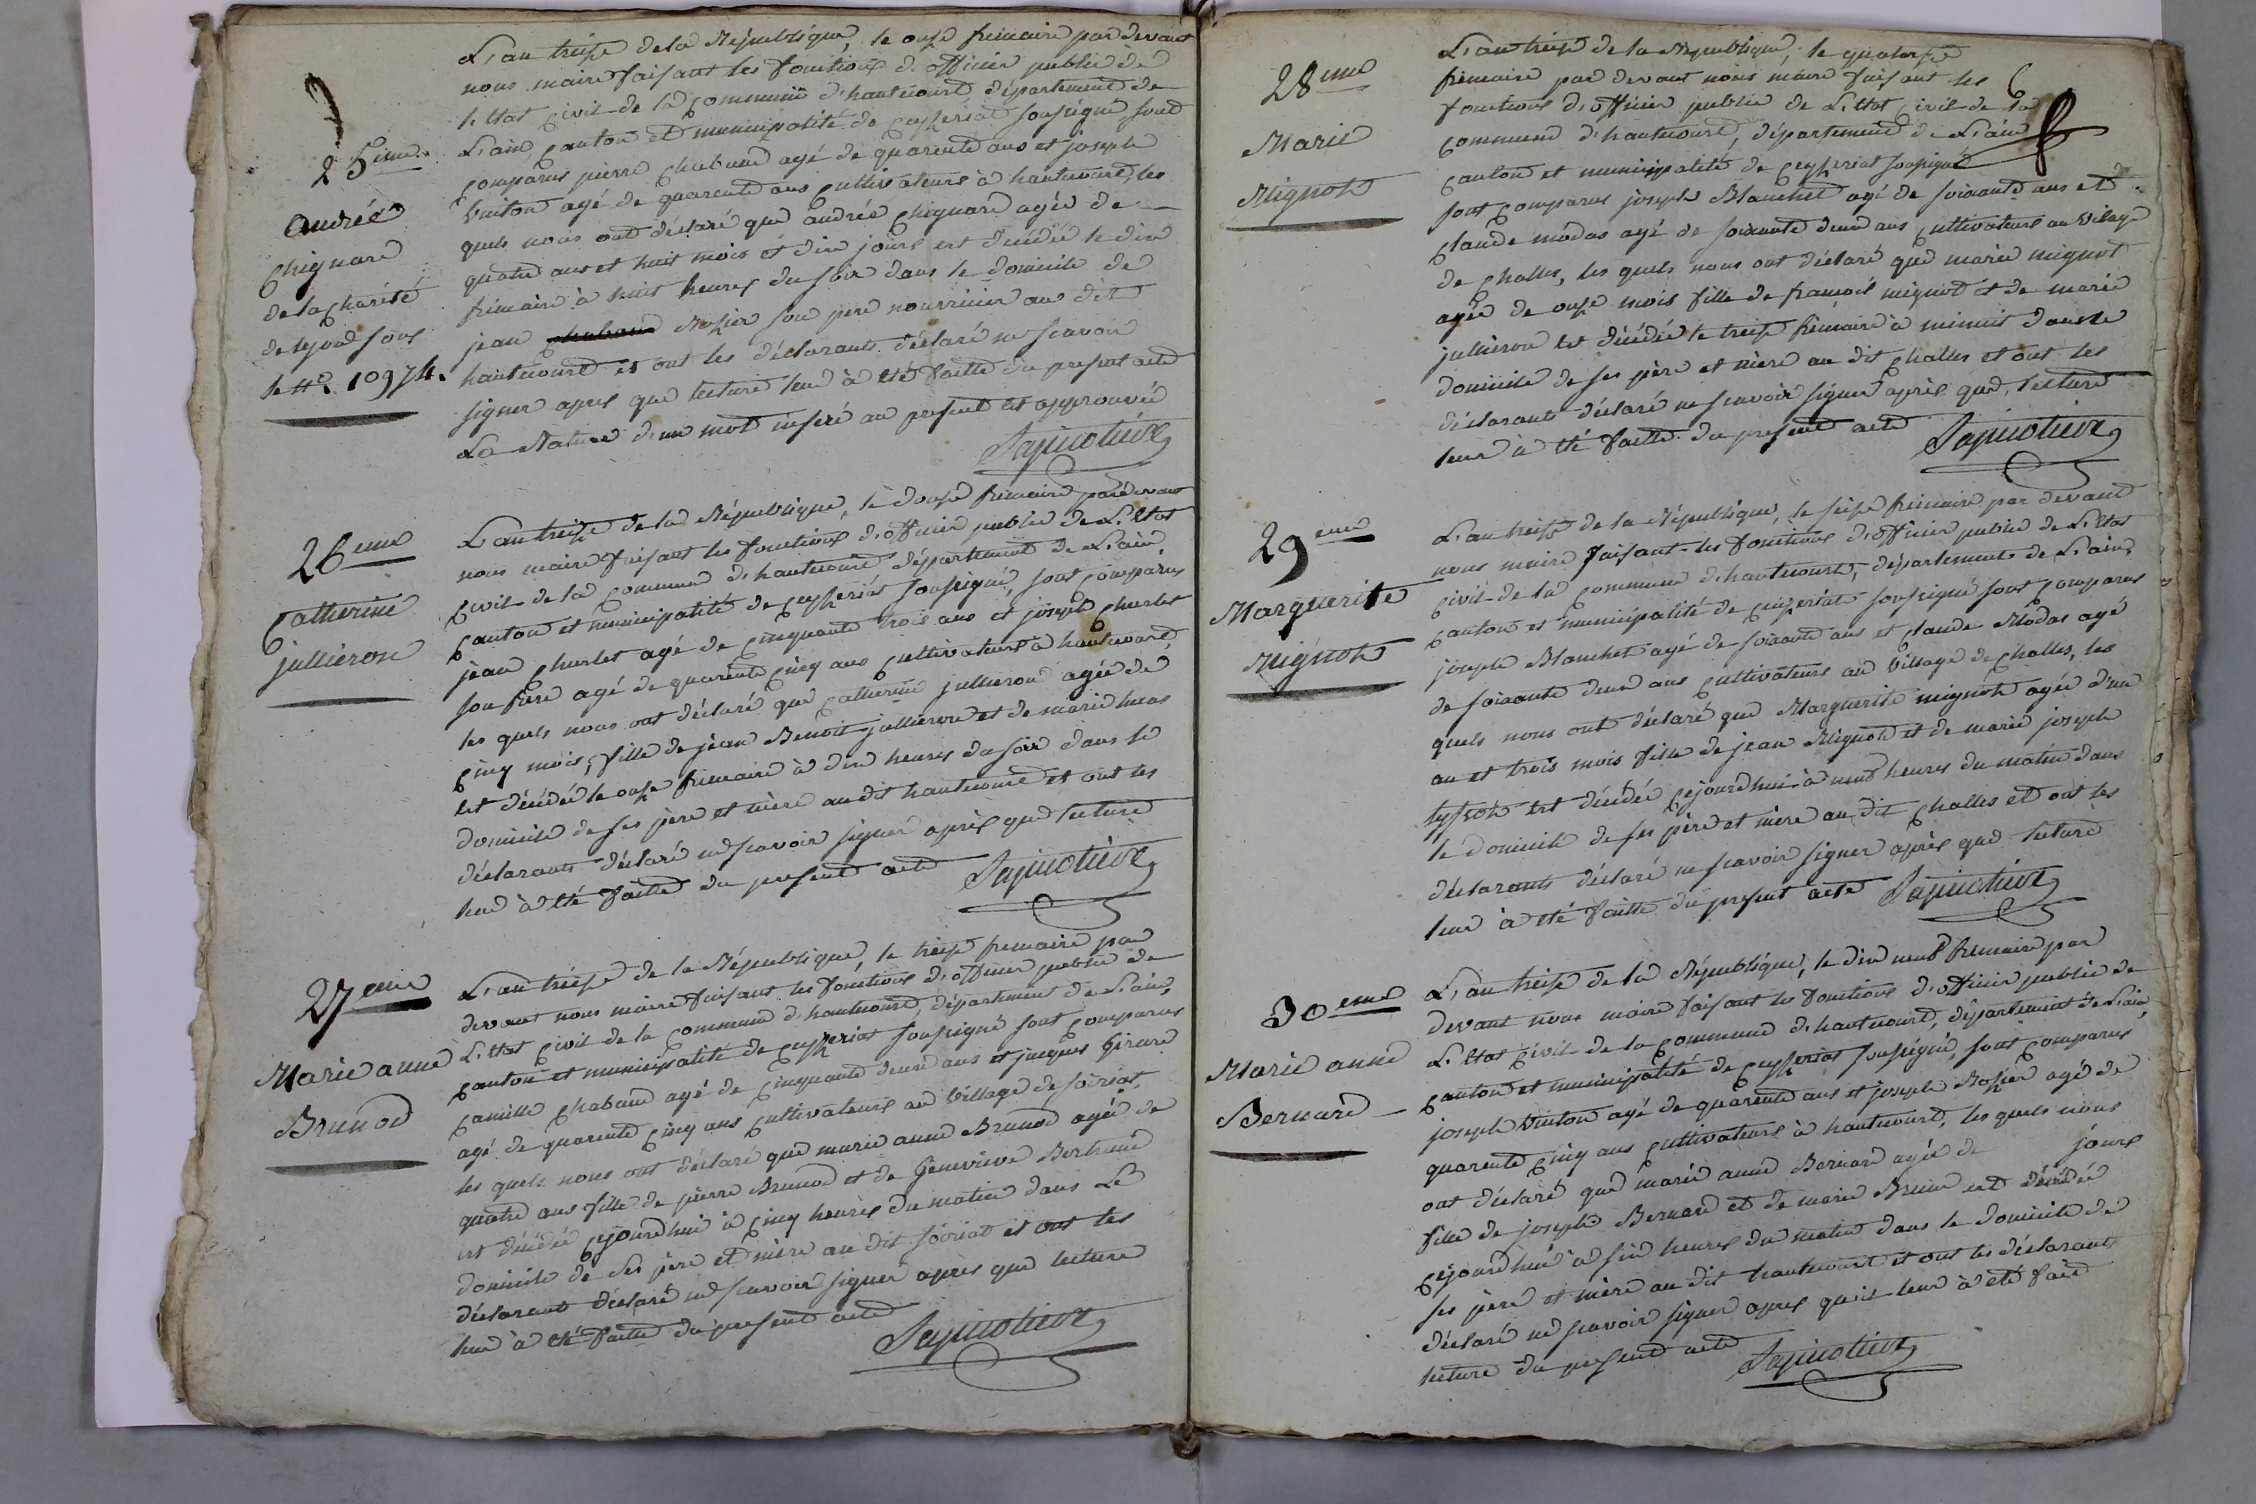 25eme
andrée
Chignard
de la charité
de lyon sous
le No. 10974.
L'an treize de la République, le onze frimaire par devant
nous maire faisant les fonctions d'officier public de
l'Etat Civil de la Commune d'hautecourt département de
L'ain, Canton et municipalité de Ceyzeriat soussigné sont
Comparus pierre Chabaud agé de quarente ans et joseph
Vuiton agé de quarente ans Cultivateurs à hautecourt, les
quels nous ont déclaré que andrée Chignard agée de
quatre ans et huit mois et dix jours est décédée le dix
frimaire à huit heures du soir dans le domicile de
jean chabaud Rozier son père nourricier au dit
hautecourt et ont les déclarants déclaré ne scavoir
signer apres que lecture leur à été faitte du present acte
La Rature d'un mot inséré au present est approuvée
26eme
Catherine
jullieron
L'an treize de la République, le douze frimaire par devant
nous maire faisant les fonctions d'officier public de L'Etat
Civil de la Commune d'hautecourt département de L'ain,
Canton et municipalité de Ceyzeriat soussigné, sont Comparus
jean Churlet agé de Cinquante trois ans et joseph Churlet
son frère agé de quarente Cinq ans Cultivateurs à hautecourt,
les quels nous ont déclaré que Catherine jullieron agée de
Cinq mois, fille de jean Benoit jullieron et de marie lucas
est décédée le onze frimaire à dix heures du soir dans le
domicile de ses père et mère au dit hautecourt et ont les
déclarants déclaré ne scavoir signer après que lecture
leur à été faitte du present acte
27eme
Marie anne
Brunod
L'an treize de la République, le treize frimaire par
devant nous maire faisant les fonctions d'officier public de
L'Etat Civil de la Commune d'hautecourt, département de L'ain,
Canton et municipalité de Ceyzeriat soussigné sont Comparus
Camille Chabaud agé de Cinquante deux ans et jacques Girard
agé de quarente Cinq ans Cultivateurs au village de soiriat,
les quels nous ont déclaré que marie anne Brunod agée de
quatre ans fille de pierre Brunod et de Genevieve Bertrand
est décédée Cejourd'hui à Cinq heures du matin dans Le
domicile de ses père et mère au dit soiriat et ont les
déclarants déclaré ne scavoir signer après que lecture
leur à été faitte du present acte
28eme
Marie
Mignot
L'an treize de la République, le quatorze
frimaire par devant nous maire faisant les
fonctions d'officier public de L'Etat Civil de la
Commune d'hautecourt, département de L'ain
Canton et municipalité de Ceyzeriat soussigné
sont Comparus joseph Blanchet agé de soixante ans et
Claude modas agé de soixante deux ans Cultivateurs au vilage
de Challes, les quels nous ont déclaré que marie mignot
agée de onze mois fille de françois mignot et de marie
jullieron est décédée le treize frimaire à minuit dans le
domicile de ses père et mère au dit Challes et ont les
déclarants déclaré ne scavoir signer après que lecture
leur à été faitte du present acte
29eme
Marguerite
Mignot
L'an treize de la République, le seize frimaire par devant
nous maire faisant les fonctions d'officier public de L'Etat
Civil de la Commune d'hautecourt, département de L'ain,
Canton et municipalité de Ceyzeriat soussigné sont Comparus
joseph Blanchet agé de soixante ans et Claude Modas agé
de soixante deux ans Cultivateurs au village de Challes, les
quels nous ont déclaré que Marguerite mignot agée d'un
an et trois mois fille de jean Mignot et de marie joseph
est décédée Cejourd'hui à neuf heures du matin dans
le domicile de ses père et mère au dit Challes et ont les
déclarants déclaré ne scavoir signer après que lecture
leur à été faitte du present acte
30eme
Marie anne
Bernard
L'an treize de la République, le dix neuf frimaire par
devant nous maire faisant les fonctions d'officier public de
L'Etat Civil de la Commune d'hautecourt, département de L'ain,
Canton et municipalité de Ceyzeriat soussigné, sont Comparus
joseph Vuiton agé de quarente ans et joseph Rozier agé de
quarente Cinq ans Cultivateurs à hautecourt, les quels nous
ont déclaré que marie anne Bernard agée de jours
fille de joseph Bernard et de marie Brun est décédée
Cejourd'hui à six heures du matin dans le domicile de
ses père et mère au dit hautecourt et ont les déclarants
déclaré ne scavoir signer apres qu'il leur à été fait
lecture du present acte